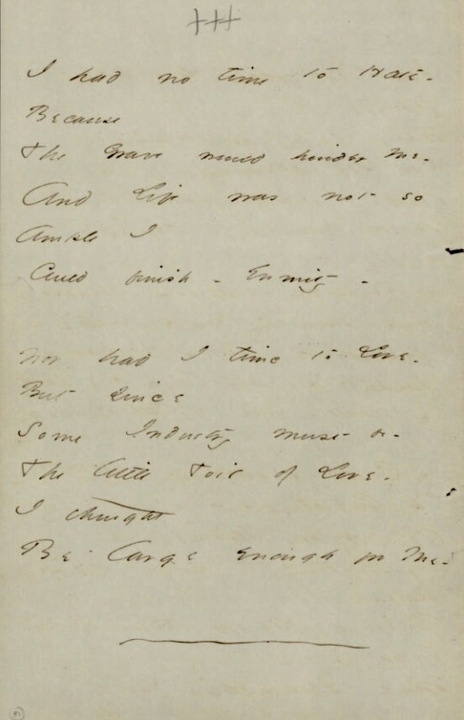 I had no time to Hate -
Because
The Grave would hinder me -
And Life was not so
Ample I
Could finish - Enmity -
Nor had I time to Love -
But since
Some Industry must be -
The little Toil of Love -
I thought
Be large enough for Me -